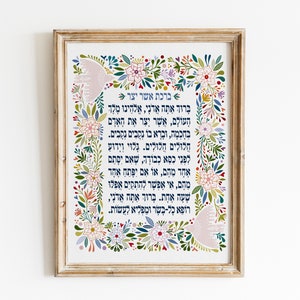 ברכת אשר יצר
ברוך אתה אדני, אלהינו מלך
העולם, אשר יצר את האדם
בחכמה, וברא בו נקבים נקבים,
חלולים חלולים. גלוי וידוע
לפני כסא כבודך, שאם יסתם
אחד מהם, או אם יפתח אחד
מהם, אי אפשר להתקים אפלו
שעה אחת. ברוך אתה אדני
רופא כל-בשר ומפליא לעשות.